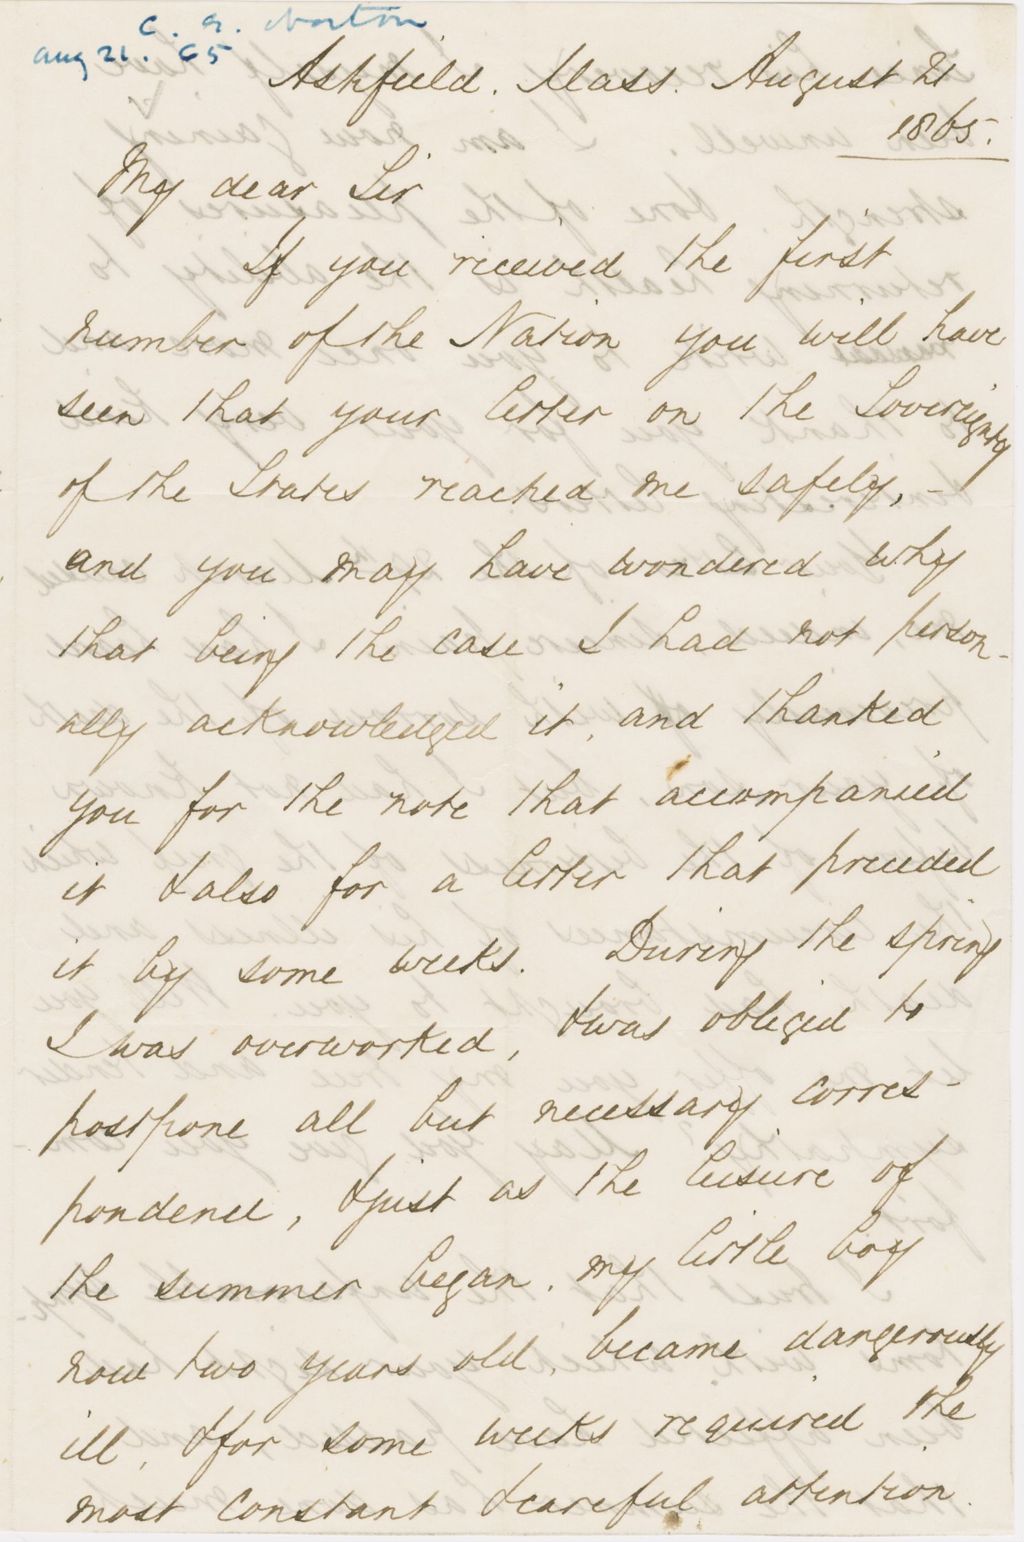 C. E. Norton
Aug 21. 65
Ashfield. Mass. August 21
1865.
My dear Sir
If you received the first
number of the Nation you will have
seen that your letter on the Sovereignty
of the States reached me safely, –
and you may have wondered why
that being the case I had not person-
ally acknowledged it, and thanked
you for the note that accompanied
it & also for a letter that preceded
it by some weeks. During the spring
I was overworked, & was obliged to
postpone all but necessary corres-
pondence, & just as the leisure of
the summer began, my little boy
now two years old, became dangerously
ill, & for some weeks required the
most constant & careful attention.